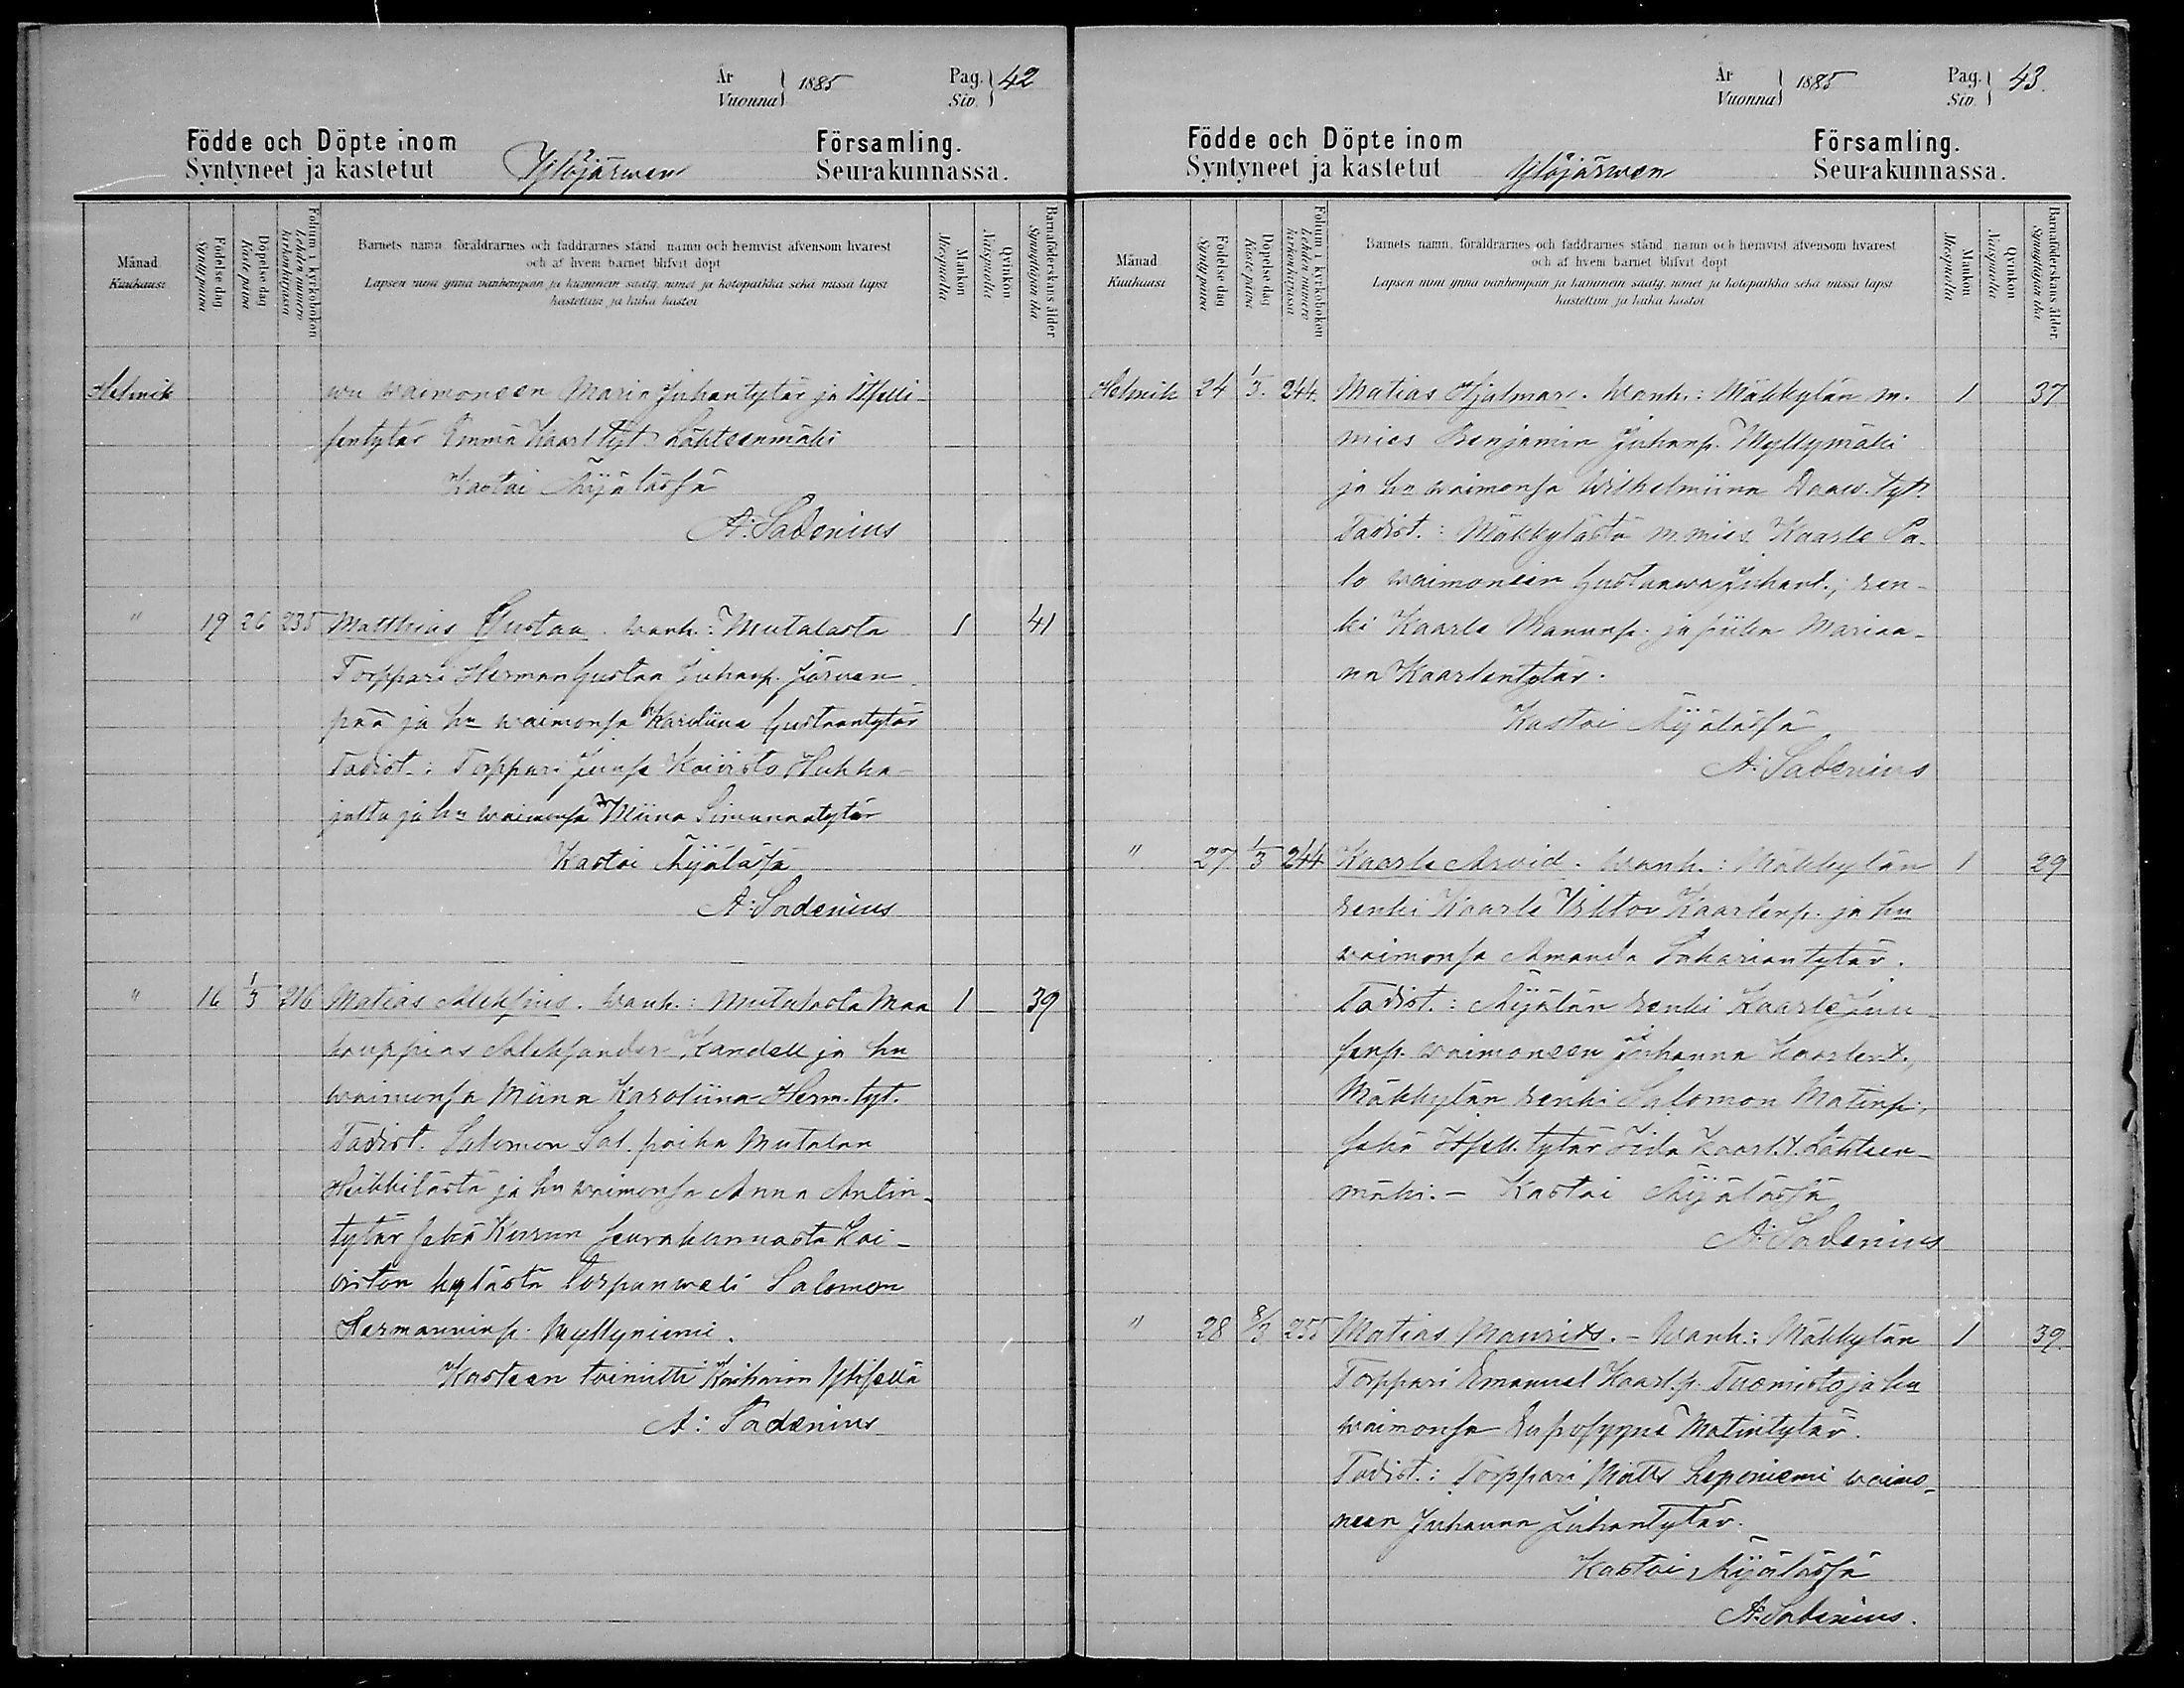 År
Vuonna } 1885 Pag. Siv. } 42
Födde och Döpte inom Församling.
Syntyneet ja kastetut Ylöjärwen Seurakunnassa.
Månad
Kuukausi
Födelsedag
Syntypäivä
Döpelsedag
Kastepäivä
Folium i kyrkoboken
Lehden numero kirkonkirjassa
Barnets namn, föräldrarnes och faddrarnes stånd, namn och hemvist äfvensom hvarest
och af hvem barnet blifvit döpt
Lapsen nimi ynnä vanhempain ja kummein sääty, nimet ja kotopaikka sekä missä lapsi
kastettiin ja kuka kastoi
Mankön
Miespuolia
Qvinkön
Naispuolia
Barnaföderskans ålder
Synnyttäjän ikä
Helmik wu waimoneen Maria Juhantytär ja Itselli-
sentytär Emma Kaarl tyt. Lähteenmäki
Kastoi Äijälässä
A. Sadenius
" 19 26 235 Matthias Gustaa. Wanh.: Mutalasta 1 41
Torppari Herman Gustaa Juhanp. Järwen
pää ja hn waimonsa Karoliina Gustaantytär
Todist.: Torppari Juha Koiwisto Hukka-
jalta ja hn waimonsa Miina Simunantytär
Kastoi Äijälässä
A. Sadenius
" 16 1/3 216 Matias Aleksius. Wanh.: Mutalasta Maa 1 39
kauppias Aleksander Kandell ja hn
waimonsa Miina Karoliina Herm. tyt.
Todist. Salomon Sal. poika Mutalan
Heikkilästä ja hn waimonsa Anna Antin-
tytär sekä Kurun seurakunnasta Koi-
wiston kylästä Torpanwäli Salomon
Hermaninp. Myllyniemi.
Kasteen toimitti
A. Sadenius
År
Vuonna } 1885 Pag. Siv. } 43.
Födde och Döpte inom Församling.
Syntyneet ja kastetut Ylöjärwen Seurakunnassa.
Månad
Kuukausi
Födelsedag
Syntypäivä
Döpelsedag
Kastepäivä
Folium i kyrkoboken
Lehden numero kirkonkirjassa
Barnets namn, föräldrarnes och faddrarnes stånd, namn och hemvist äfvensom hvarest
och af hvem barnet blifvit döpt
Lapsen nimi ynnä vanhempain ja kummein sääty, nimet ja kotopaikka sekä missä lapsi
kastettiin ja kuka kastoi
Mankön
Miespuolia
Qvinkön
Naispuolia
Barnaföderskans ålder
Synnyttäjän ikä
Helmik 24 1/3. 244. Matias Hjalmar. Wanh.: Mäkkylän m. 1 37
mies Benjamin Juhanp. Myllymäki
ja hn waimonsa Wilhelmiina Daaw. tyt.
Todist.: Mäkkylästä m. mies Kaarle Sa-
lo waimoneen Gustaawa Juhant., ren-
ki Kaarle Manunp. ja piika Maria-
na Kaarlentytär.
Kastoi Äijälässä
A. Sadenius
" 27 1/3 244 Kaarle Arvid. Wanh.: Mäkkylän 1 29
renki Kaarle Viktor Kaarlenp. ja hn
waimonsa Amanda Sakariantytär.
Todist.: Äijälän renki Kaarle Juu-
senp. waimoneen Johanna Kaarlent.,
Mäkkylän renki Salomon Matinp.,
sekä Itsell. tytär Iida Kaarl.t. Lähteen-
mäki. - Kastoi Äijälässä
A. Sadenius
" 28 8/3 255 Matias Maurits. - Wanh.: Mäkkylän 1 39.
Torppari Emanuel Kaarl.p. Tuomisto ja hn
waimonsa Eufrosyyne Matintytär.
Todist.: Torppari Matts Leponiemi waimo-
neen Juhanna Juhantytär.
Kastoi Äijälässä
A. Sadenius.